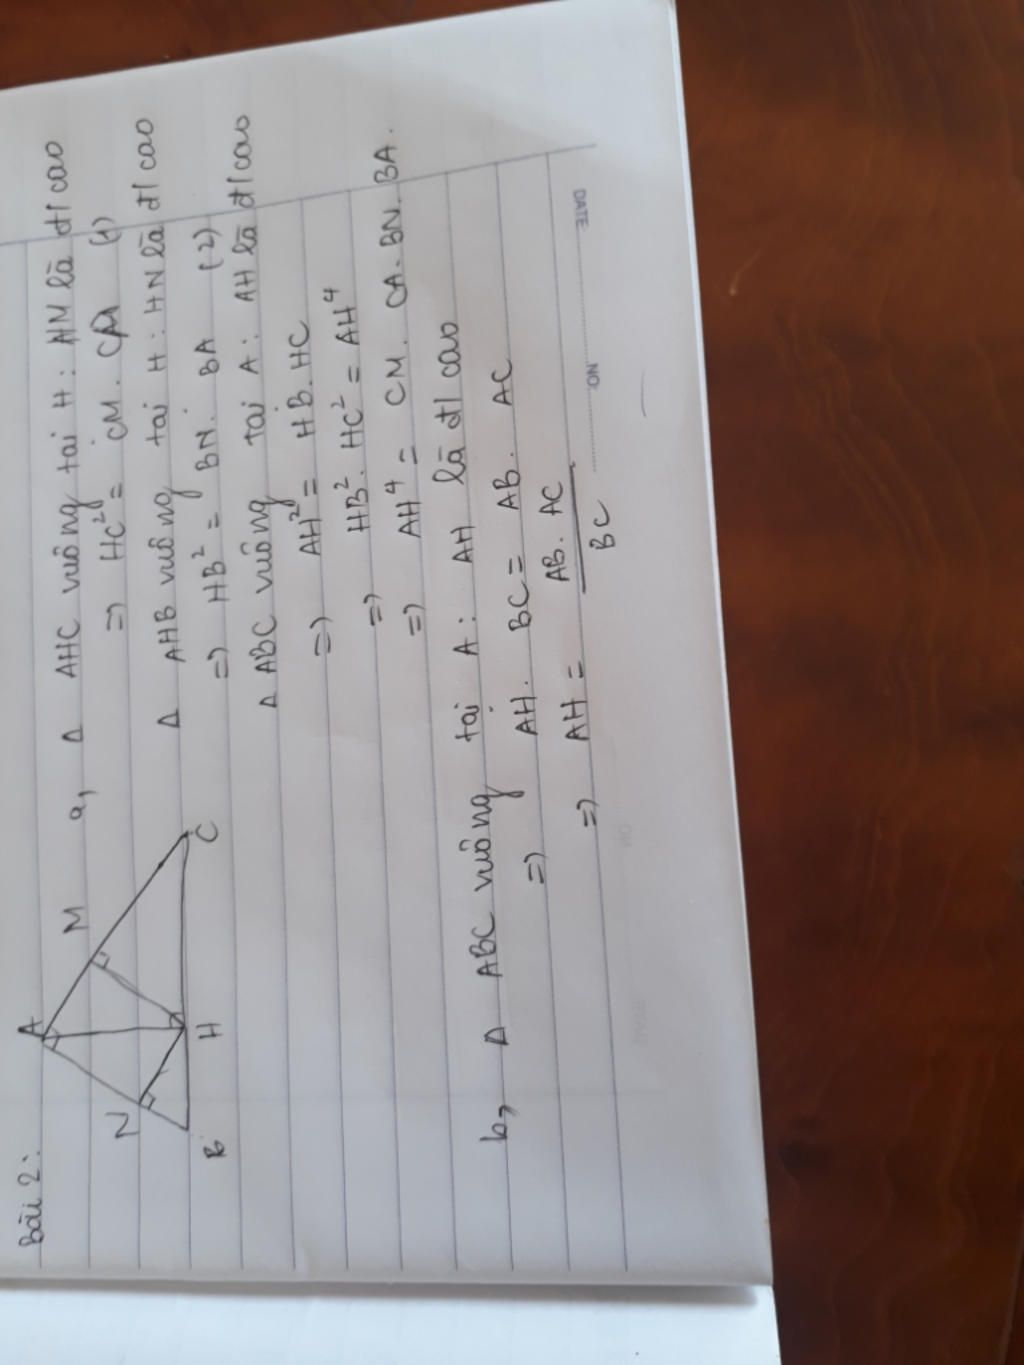 Bài 2:
A
M
N
B
H
C
a, Δ AHC vuông tại H: HM là đ/cao
=> HC² = CM. CA (1)
Δ AHB vuông tại H: HN là đ/cao
=> HB² = BN. BA (2)
Δ ABC vuông tại A: AH là đ/cao
=> AH² = HB. HC
=> HB². HC² = AH⁴
=> AH⁴ = CM. CA. BN. BA.
b, Δ ABC vuông tại A: AH là đ/cao
=> AH. BC = AB. AC
=> AH = AB. AC / BC
DATE
NO.